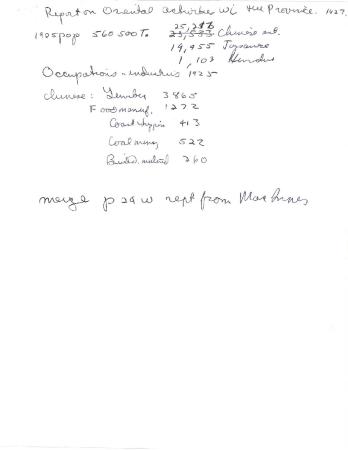 Report on Oriental activities w/i the Province. 1927.
25,216
1925 pop 560 500 To 23,533 Chinese
19,455 Japanese
1,103 Hindus
Occupations - industries 1925
Chinese: Lumber 3865
Food manuf. 1272
Coast shipping 413
Coal mining 522
Build. material 260
merge p 24 w rept from Mac Innes